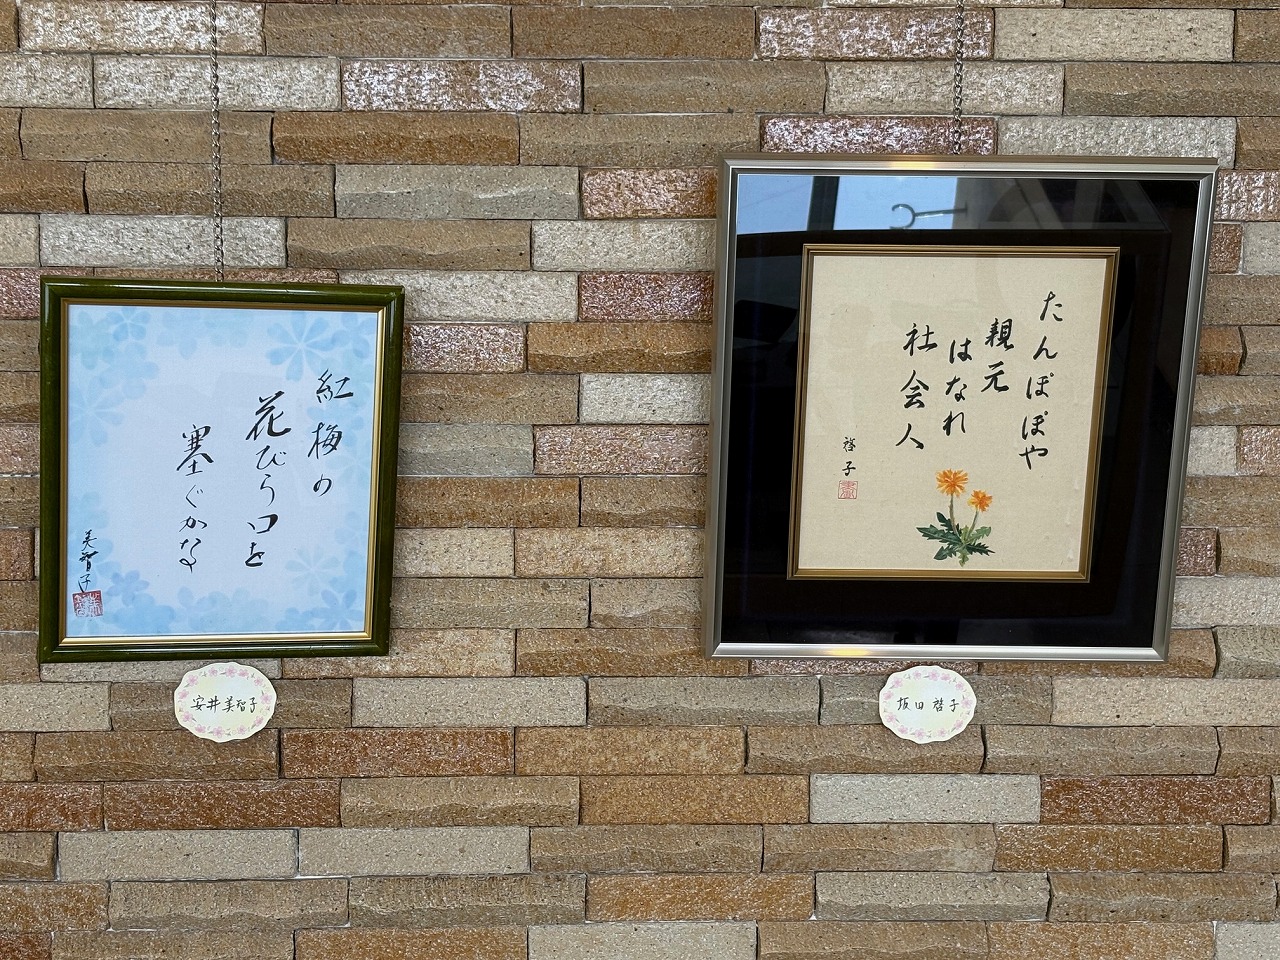 紅梅の
花びら口を
塞ぐかな
美智子
安井美智子
たんぽぽや
親元
はなれ
社会人
啓子
坂田啓子